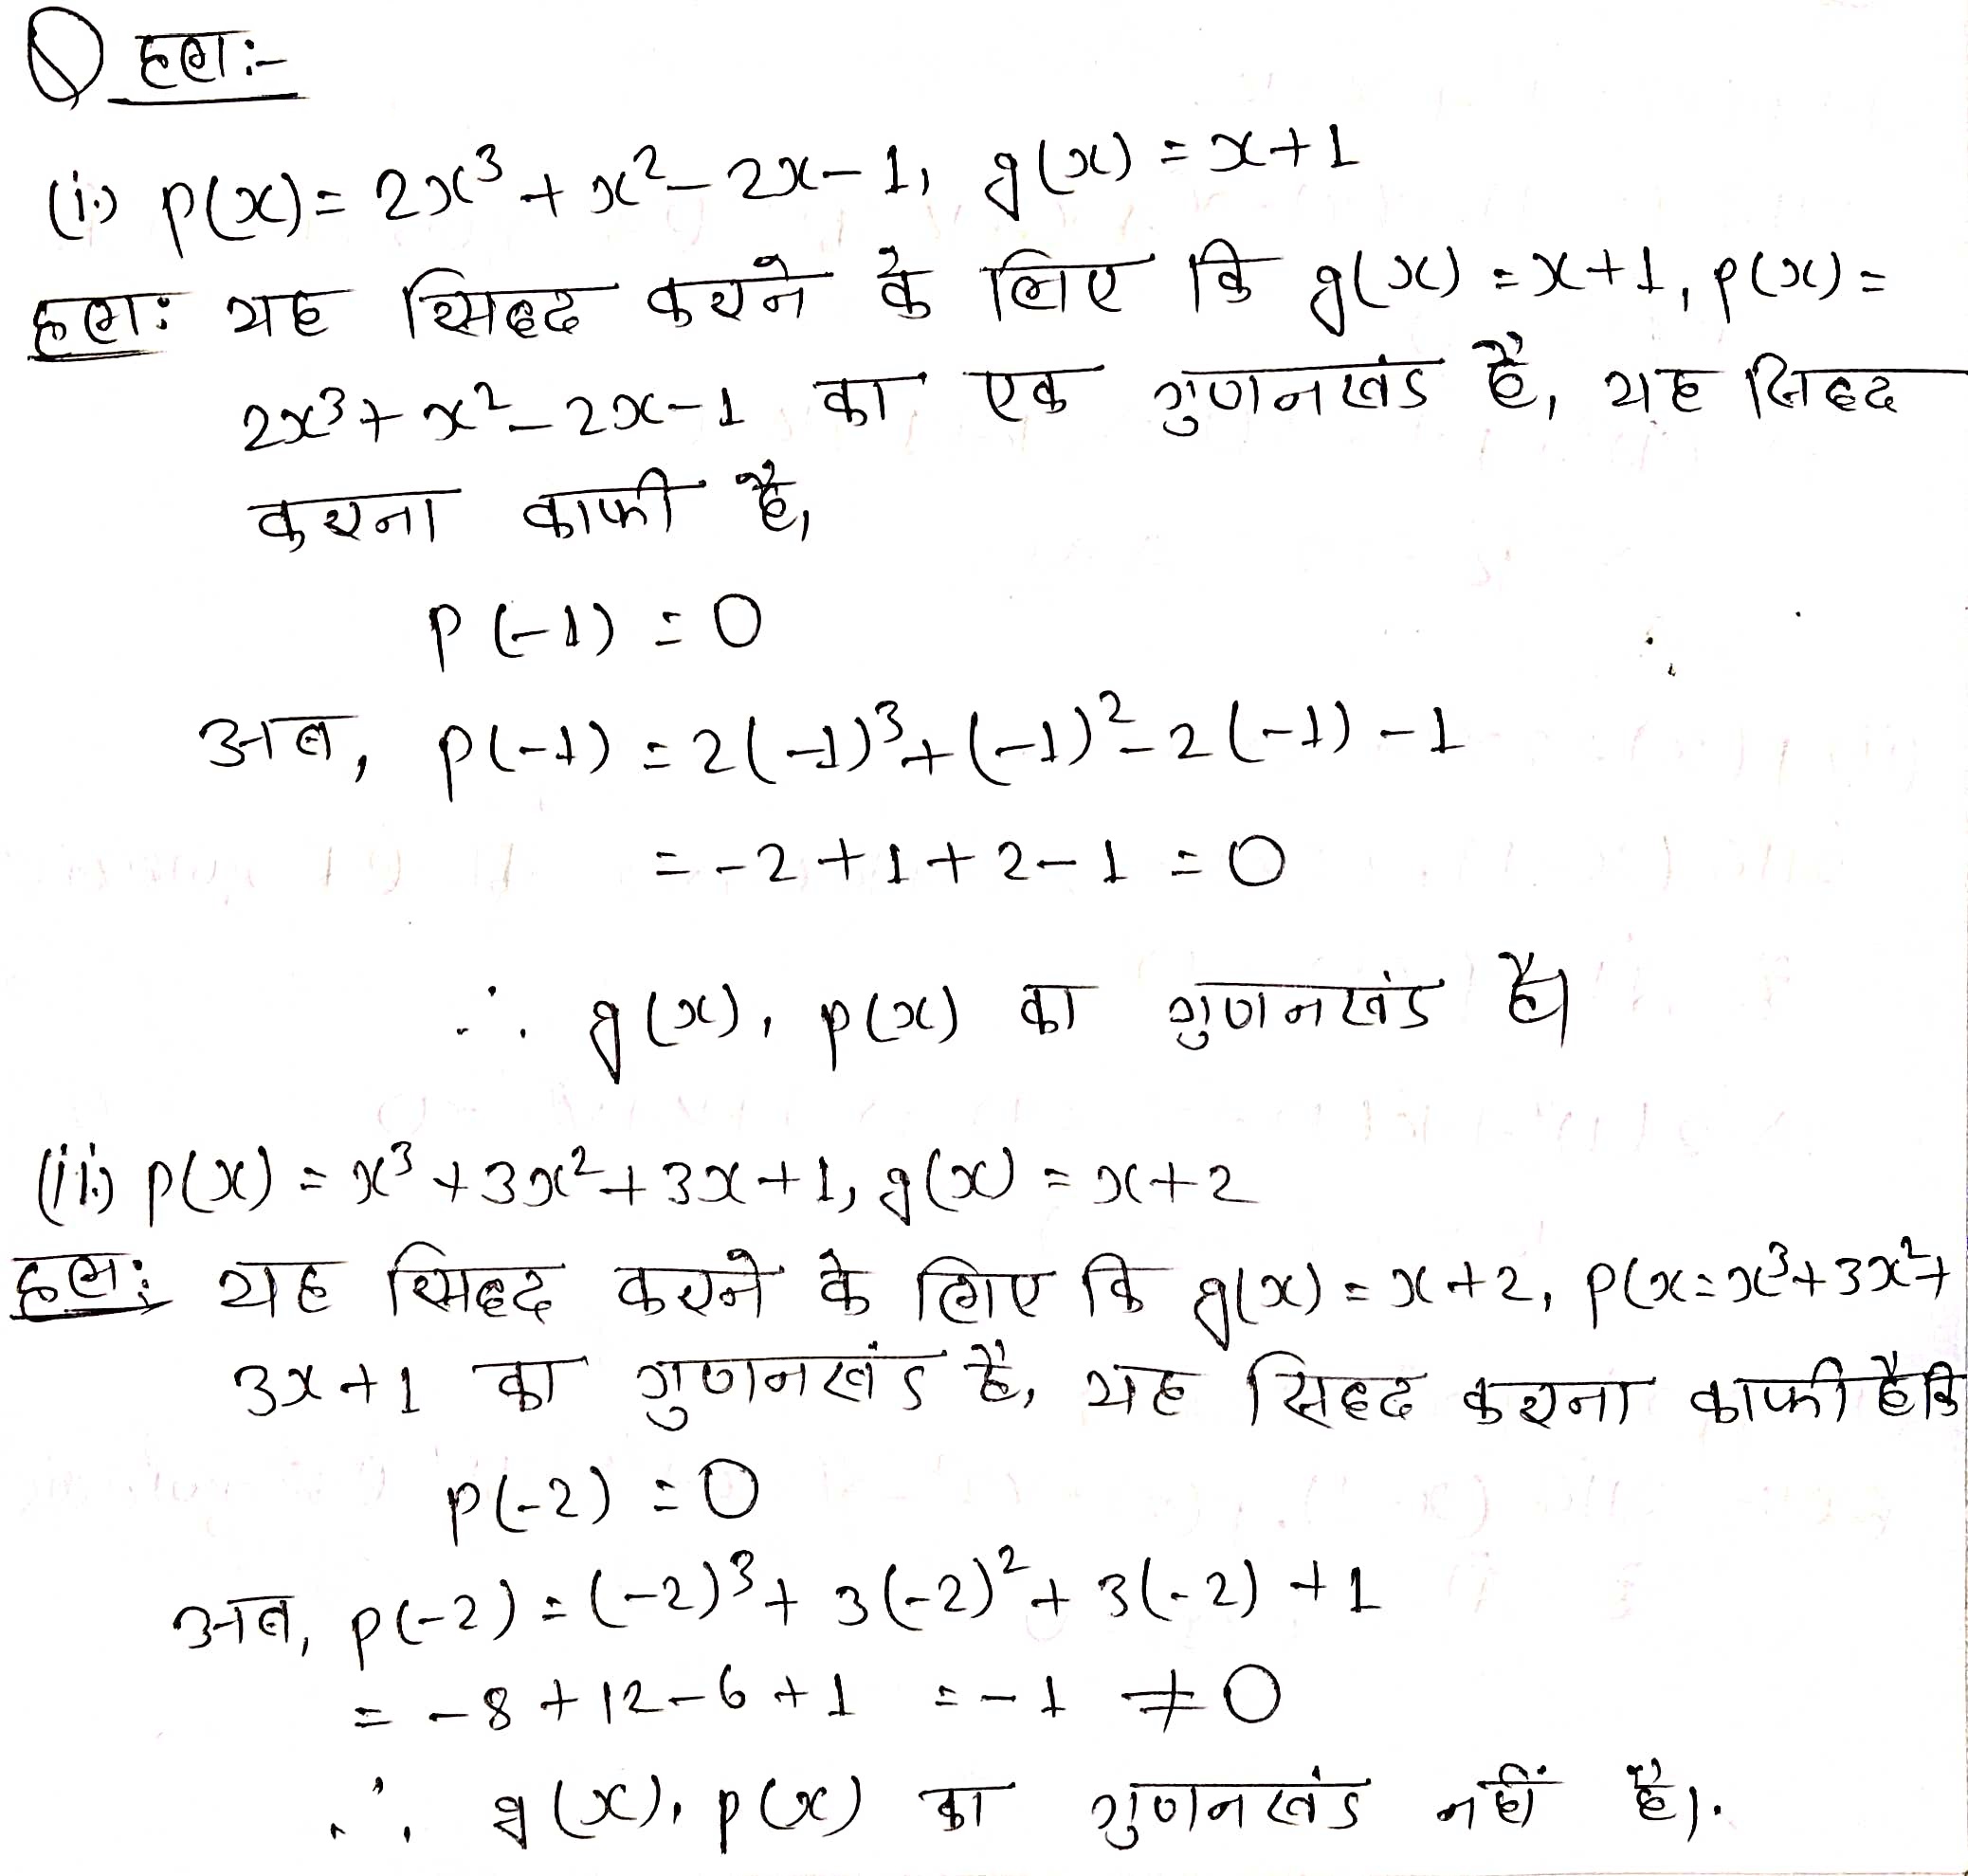 Q हल:-
(i) p(x) = 2x³ + x² - 2x - 1, g(x) = x + 1
हल: यह सिद्द करने के लिए कि g(x) = x + 1, p(x) =
2x³ + x² - 2x - 1 का एक गुणनखंड है, यह सिद्द
करना काफी है,
P(-1) = 0
अब, p(-1) = 2(-1)³ + (-1)² - 2(-1) - 1
= -2 + 1 + 2 - 1 = 0
∴ g(x), p(x) का गुणनखंड है।
(ii) p(x) = x³ + 3x² + 3x + 1, g(x) = x + 2
हल: यह सिद्द करने के लिए कि g(x) = x + 2, p(x = x³ + 3x² +
3x + 1 का गुणनखंड है, यह सिद्द करना काफी है कि
p(-2) = 0
अब, p(-2) = (-2)³ + 3(-2)² + 3(-2) + 1
= -8 + 12 - 6 + 1 = -1 ≠ 0
∴ g(x), p(x) का गुणनखंड नहीं है।.